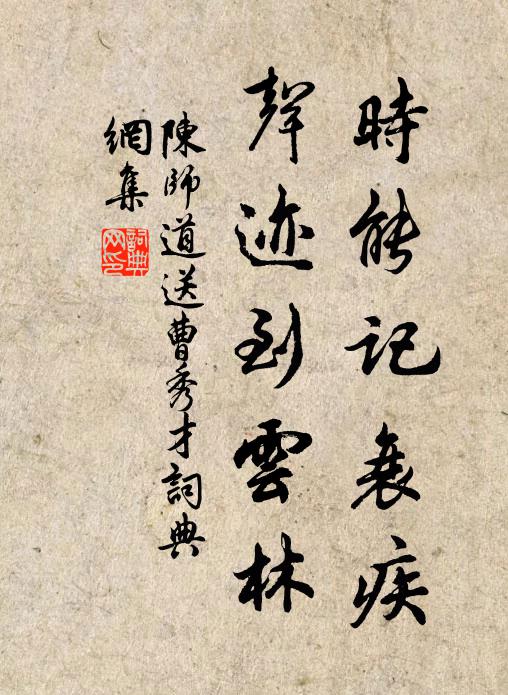 時能記衰疾
聲迹到雲林
陳師道送曹秀才詞典
網集
詞典
网印